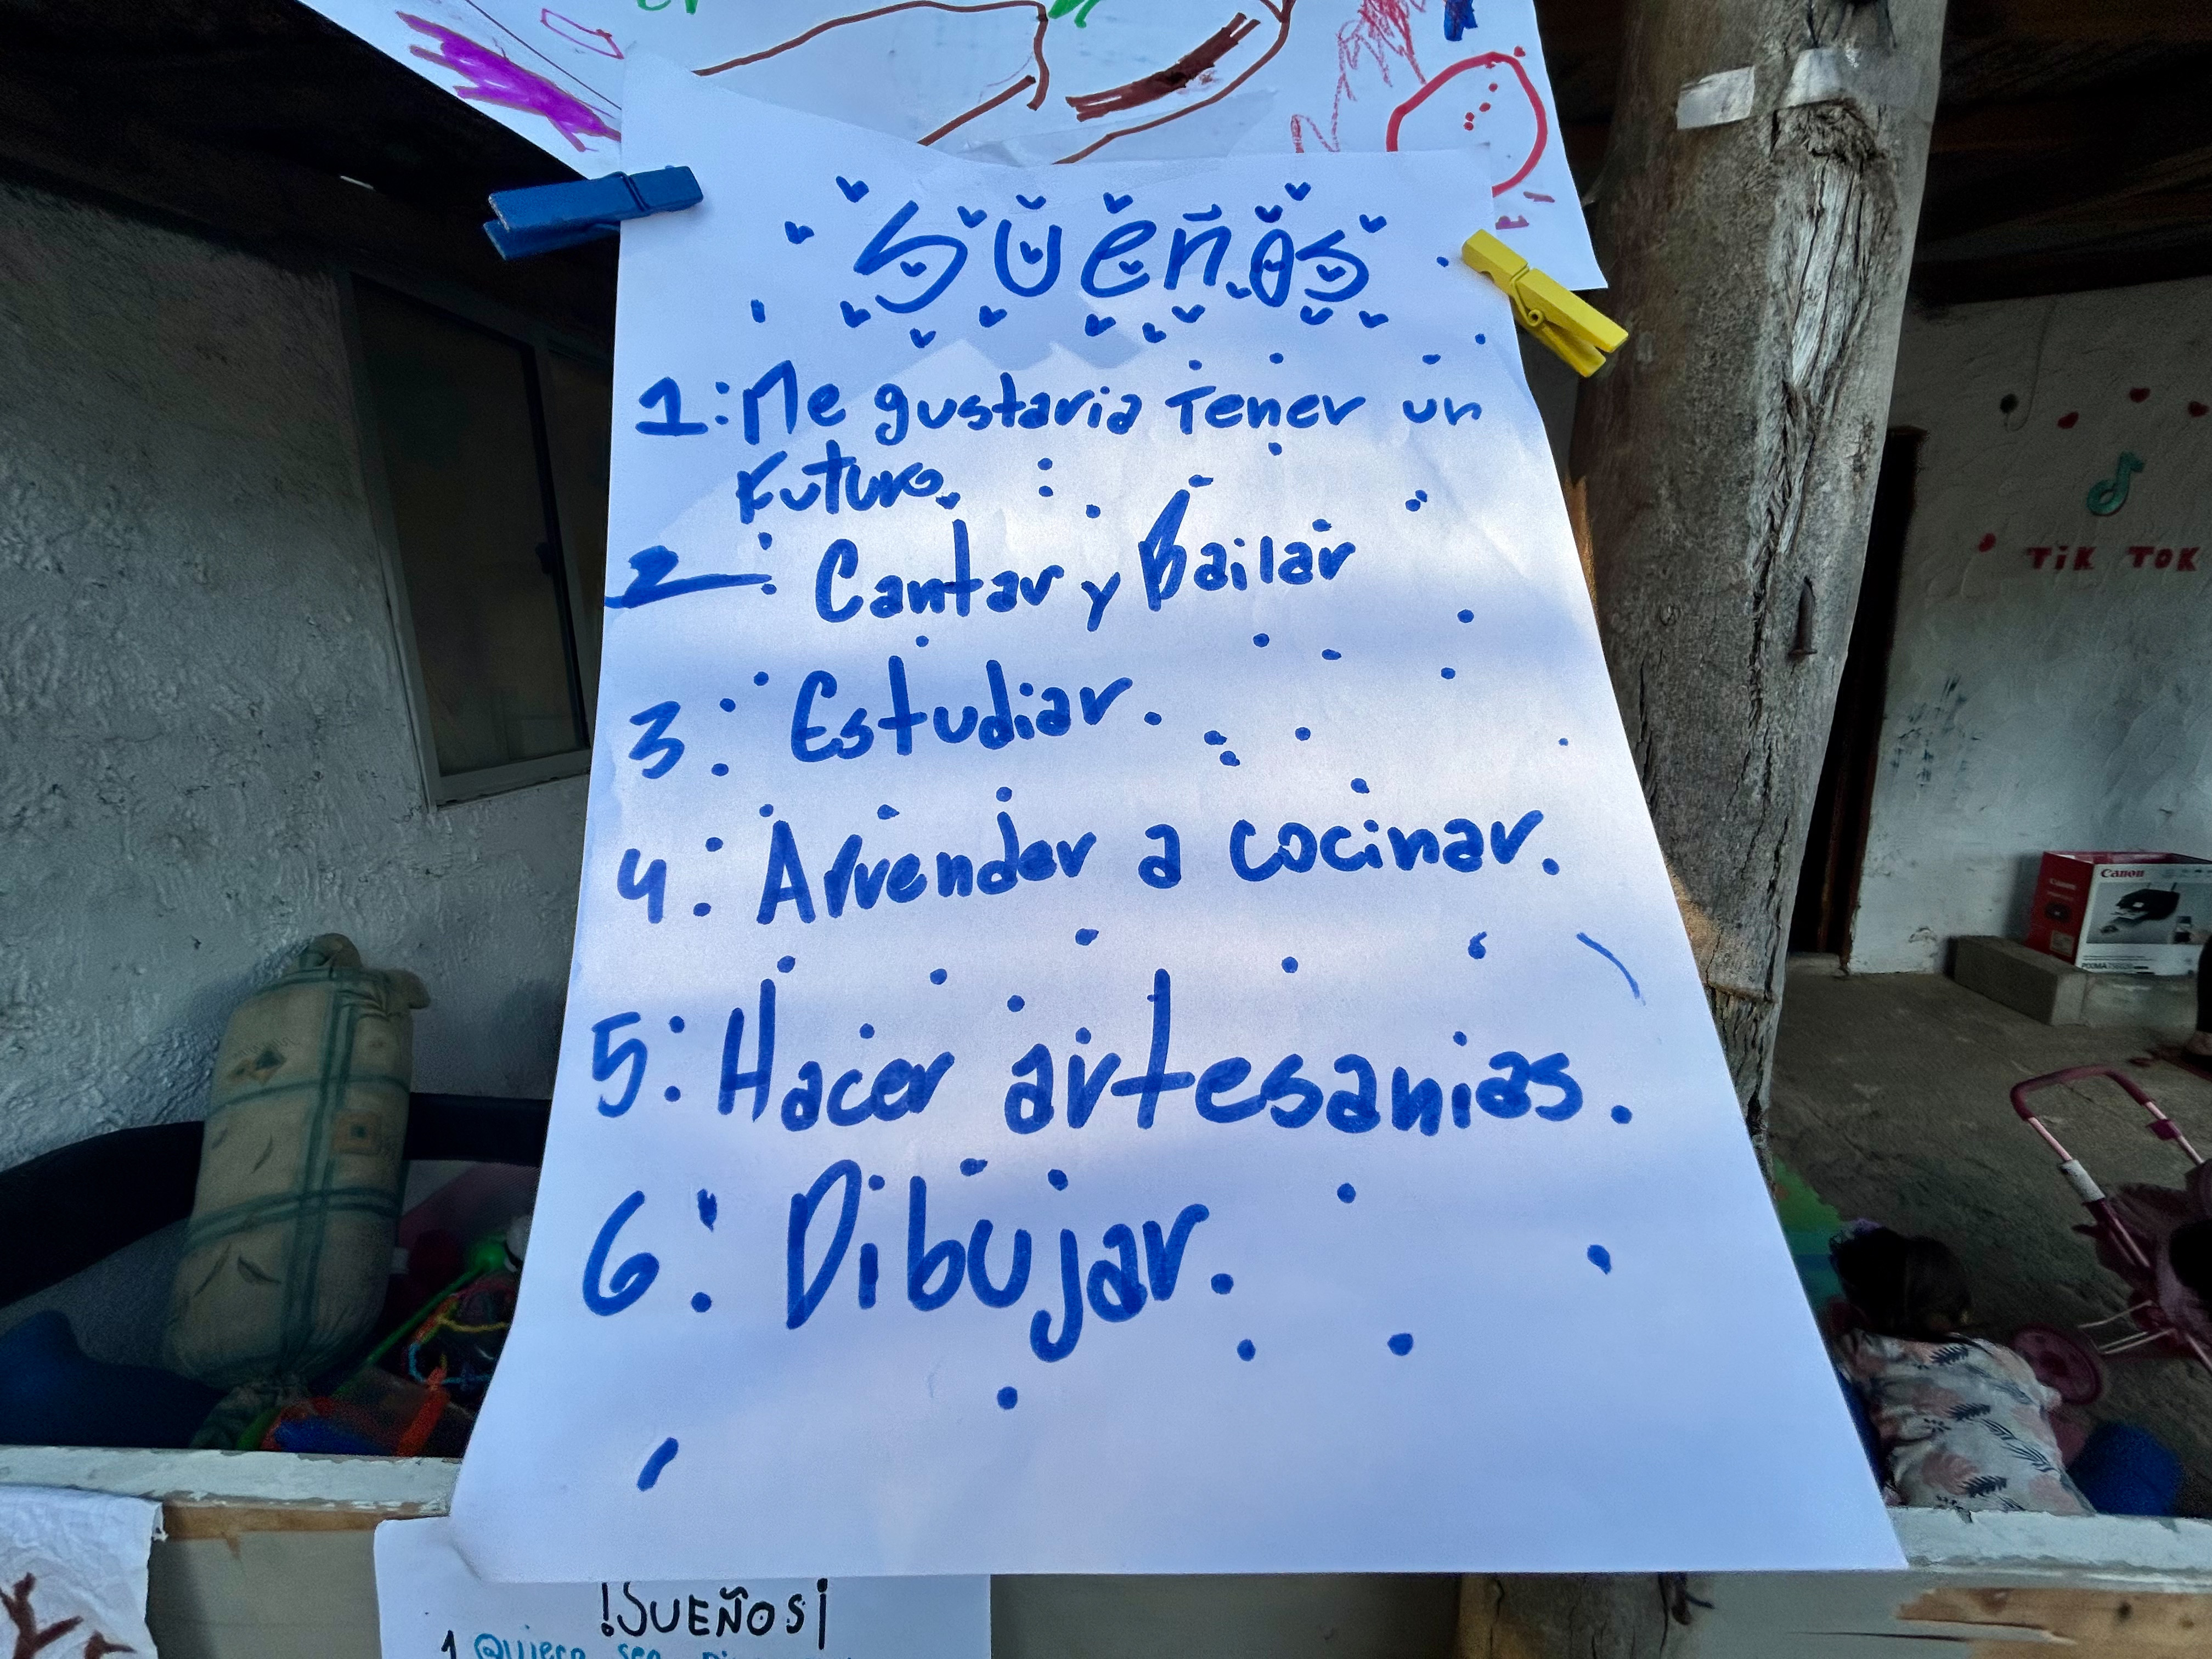 Sueños
1: Me gustaria Tener un
Futuro.
2: Cantar y Bailar
3: Estudiar.
4: Aprender a cocinar.
5: Hacer artesanias.
6: Dibujar.
¡SUEÑOS!
1 Quiero ser
TiK TOK
Canon
Canon
PIXMA